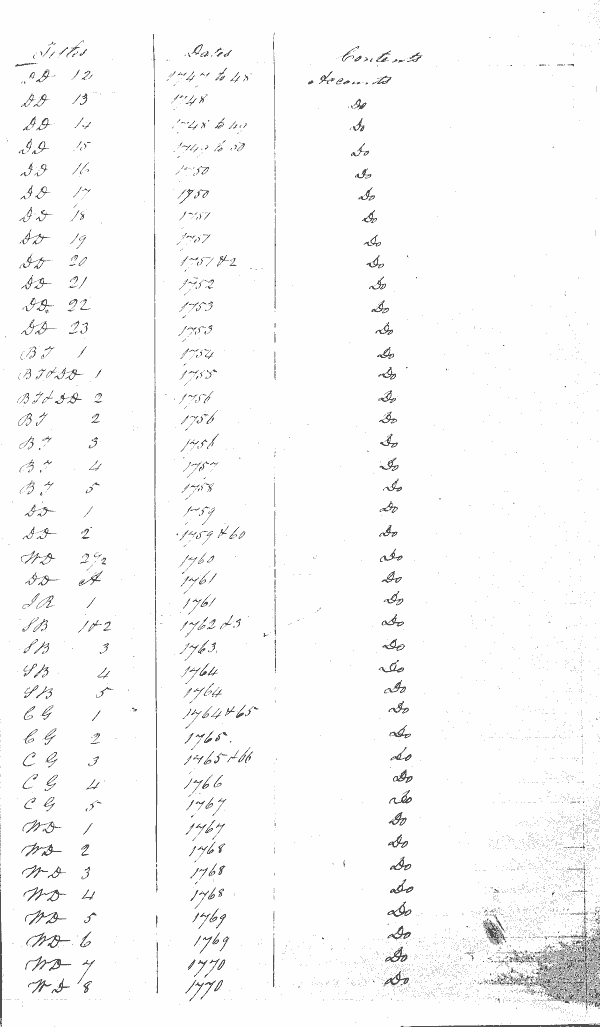 Titles Dates Contents
DD 12 1747 to 48 Accounts
DD 13 1748 Do
DD 14 1748 to 49 Do
DD 15 1749 to 50 Do
DD 16 1750 Do
DD 17 1750 Do
DD 18 1751 Do
DD 19 1751 Do
DD 20 1751 & 2 Do
DD 21 1752 Do
DD. 22 1753 Do
DD 23 1753 Do
BT 1 1754 Do
BT & DD 1 1755 Do
BT & DD 2 1756 Do
BT 2 1756 Do
BT 3 1756 Do
BT 4 1757 Do
BT 5 1758 Do
DD 1 1759 Do
DD 2 1759 & 60 Do
WD 1760 Do
DD A 1761 Do
JR 1 1761 Do
SB 1 & 2 1762 & 3 Do
SB 3 1763. Do
SB 4 1764 Do
SB 5 1764 Do
CG 1 1764 & 65 Do
CG 2 1765. Do
CG 3 1765 & 66 Do
CG 4 1766 Do
CG 5 1767 Do
WD 1 1767 Do
WD 2 1768 Do
WD 3 1768 Do
WD 4 1768 Do
WD 5 1769 Do
WD 6 1769 Do
WD 7 1770 Do
WD 8 1770 Do